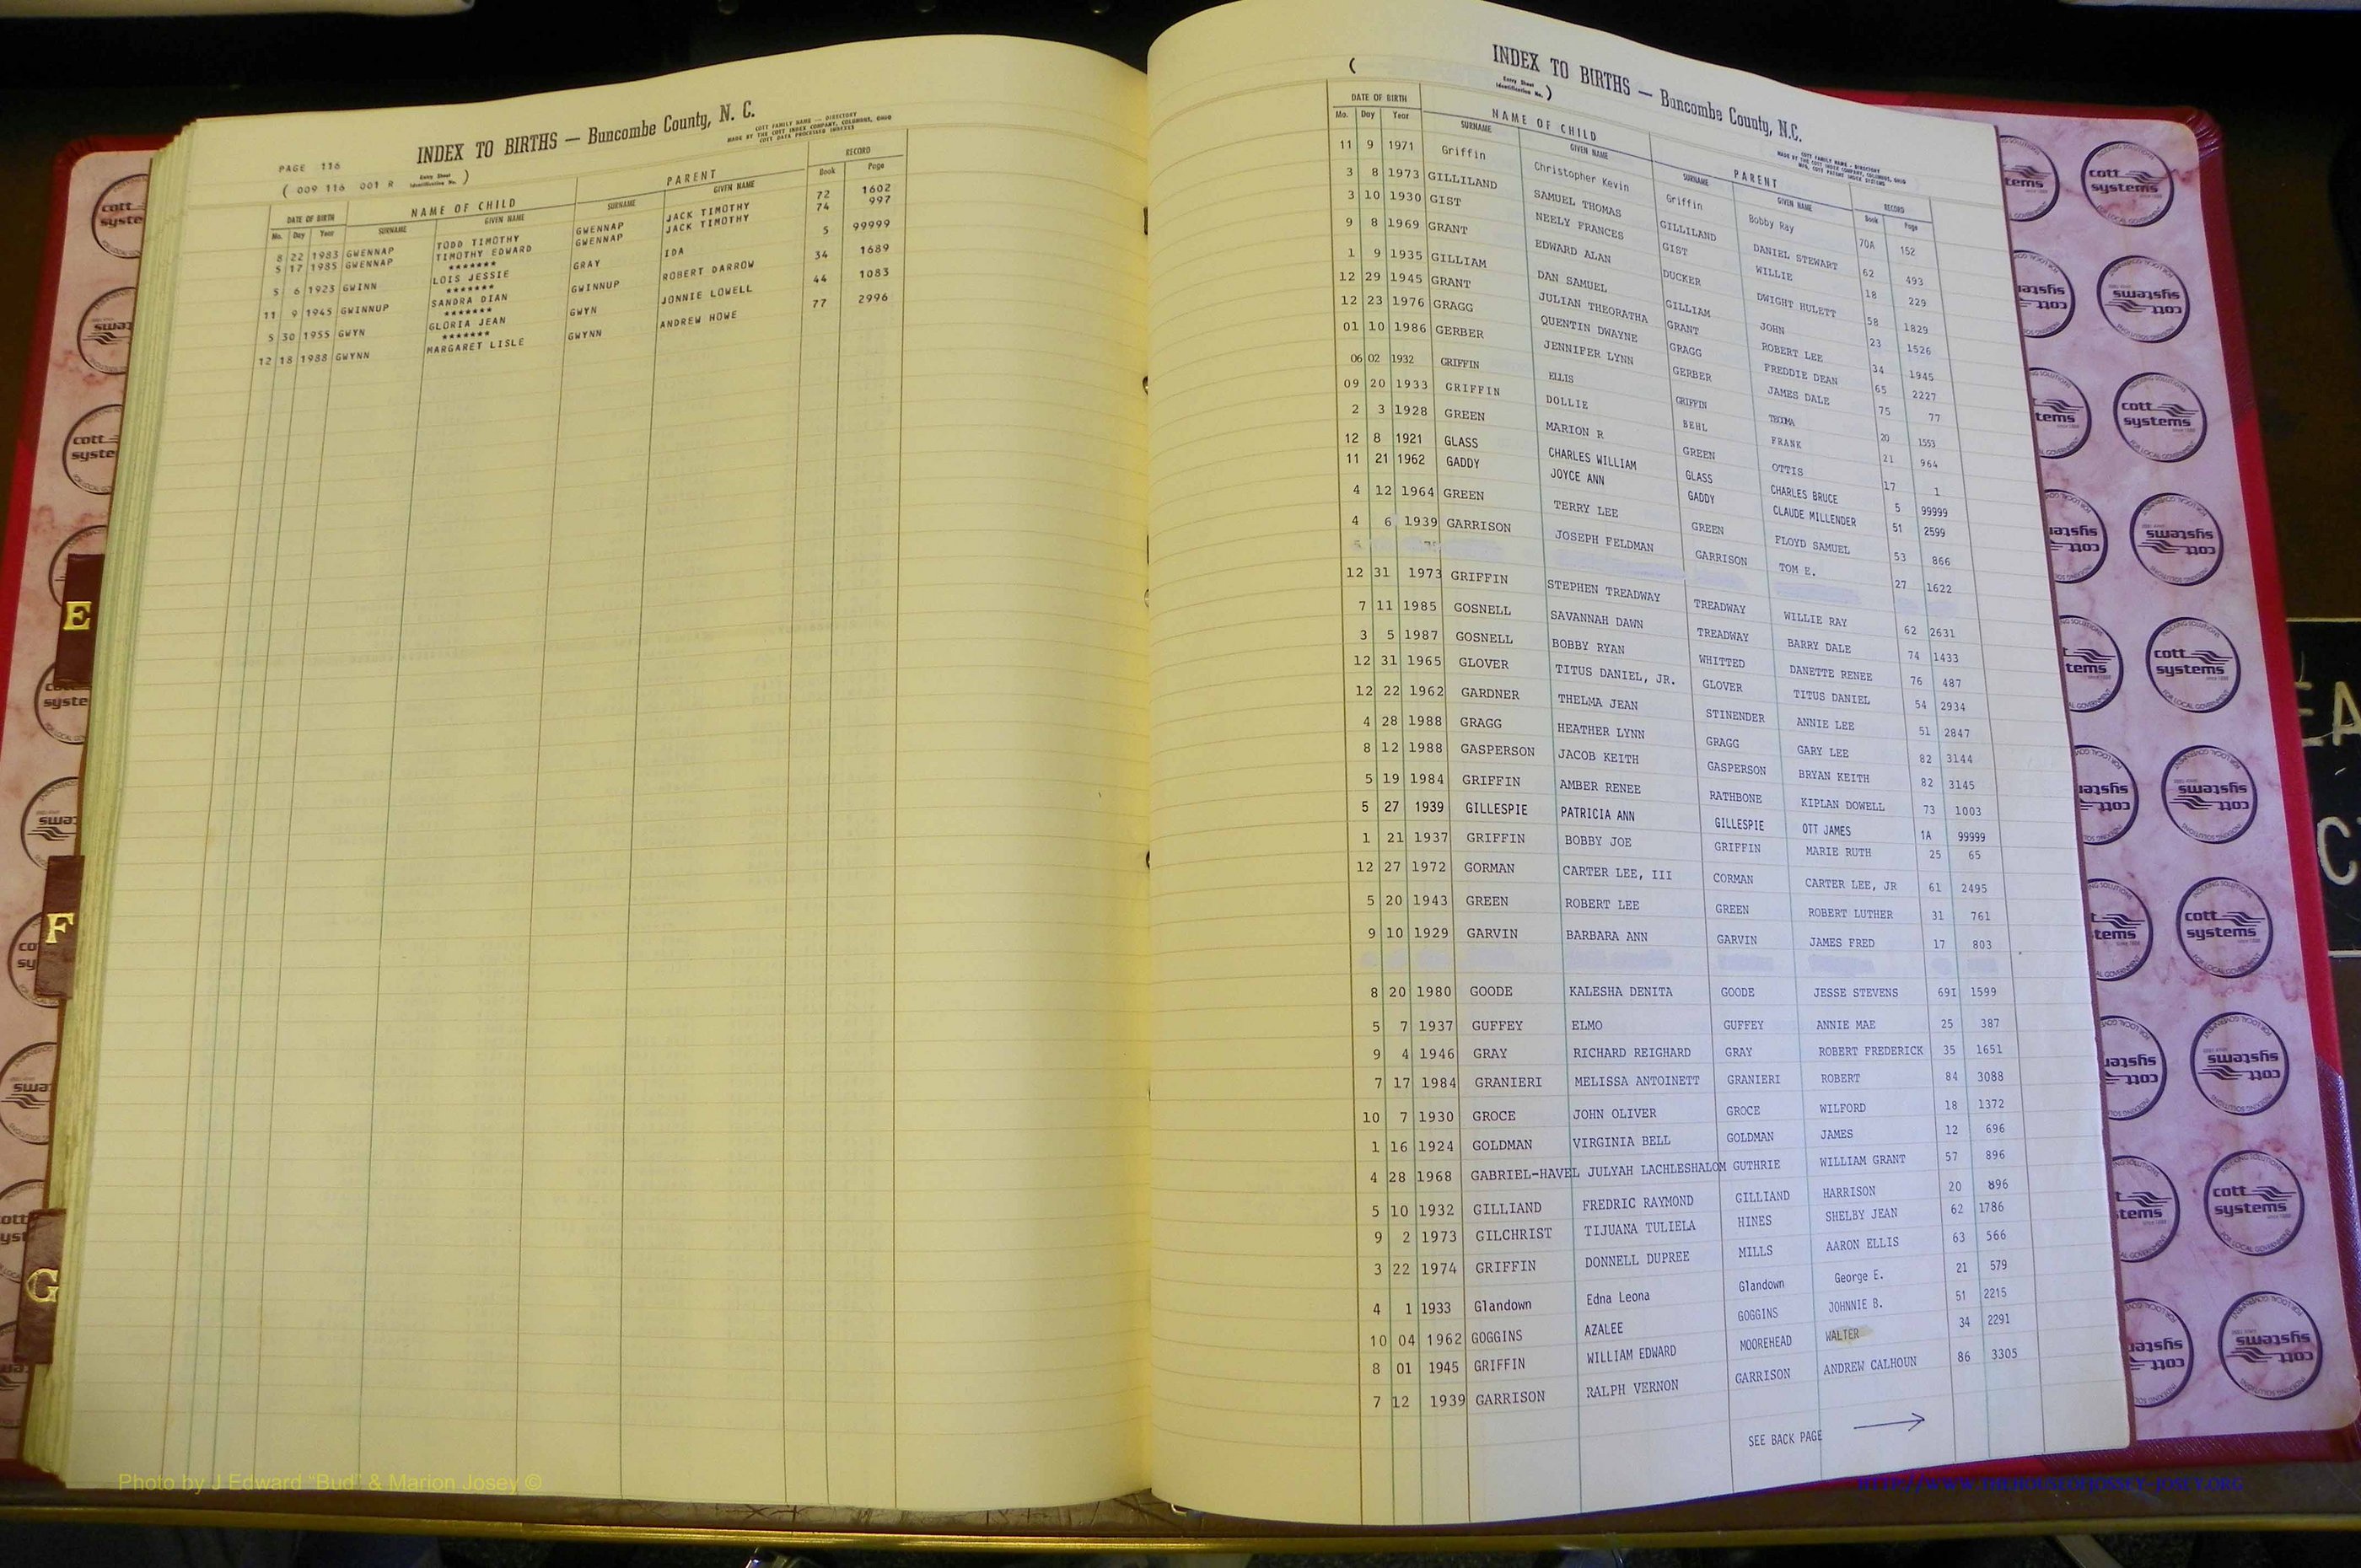 INDEX TO BIRTHS — Buncombe County, N. C.
COTT FAMILY NAME — DIRECTORY
MADE BY THE COTT INDEX COMPANY, COLUMBUS, OHIO
COTT DATA PROCESSED INDEXES
PAGE 116
( 009 116 001 R Entry Sheet Identification No. )
DATE OF BIRTH NAME OF CHILD PARENT RECORD
Mo. Day Year SURNAME GIVEN NAME SURNAME GIVEN NAME Book Page
8 22 1983 GWENNAP TODD TIMOTHY GWENNAP JACK TIMOTHY 72 1602
5 17 1985 GWENNAP TIMOTHY EDWARD GWENNAP JACK TIMOTHY 74 997
*******
5 6 1923 GWINN LOIS JESSIE GRAY IDA 5 99999
*******
11 9 1945 GWINNUP SANDRA DIAN GWINNUP ROBERT DARROW 34 1689
*******
5 30 1955 GWYN GLORIA JEAN GWYN JONNIE LOWELL 44 1083
*******
12 18 1988 GWYNN MARGARET LISLE GWYNN ANDREW HOWE 77 2996
INDEX TO BIRTHS — Buncombe County, N.C.
( Entry Sheet Identification No. )
COTT FAMILY NAME — DIRECTORY
MADE BY THE COTT INDEX COMPANY, COLUMBUS, OHIO
DATE OF BIRTH NAME OF CHILD PARENT RECORD
Mo. Day Year SURNAME GIVEN NAME SURNAME GIVEN NAME Book Page
11 9 1971 Griffin Christopher Kevin Griffin Bobby Ray 70A 152
3 8 1973 GILLILAND SAMUEL THOMAS GILLILAND DANIEL STEWART 62 493
3 10 1930 GIST NEELY FRANCES GIST WILLIE 18 229
9 8 1969 GRANT EDWARD ALAN DUCKER DWIGHT HULETT 58 1829
1 9 1935 GILLIAM DAN SAMUEL GILLIAM JOHN 23 1526
12 29 1945 GRANT JULIAN THEORATHA GRANT ROBERT LEE 34 1945
12 23 1976 GRAGG QUENTIN DWAYNE GRAGG FREDDIE DEAN 65 2227
01 10 1986 GERBER JENNIFER LYNN GERBER JAMES DALE 75 77
06 02 1932 GRIFFIN ELLIS GRIFFIN 20 1553
09 20 1933 GRIFFIN DOLLIE BEHL FRANK 21 964
2 3 1928 GREEN MARION R GREEN OTTIS 17 1
12 8 1921 GLASS CHARLES WILLIAM GLASS CHARLES BRUCE 5 99999
11 21 1962 GADDY JOYCE ANN GADDY CLAUDE MILLENDER 51 2599
4 12 1964 GREEN TERRY LEE GREEN FLOYD SAMUEL 53 866
4 6 1939 GARRISON JOSEPH FELDMAN GARRISON TOM E. 27 1622
12 31 1973 GRIFFIN STEPHEN TREADWAY TREADWAY WILLIE RAY 62 2631
7 11 1985 GOSNELL SAVANNAH DAWN TREADWAY BARRY DALE 74 1433
3 5 1987 GOSNELL BOBBY RYAN WHITTED DANETTE RENEE 76 487
12 31 1965 GLOVER TITUS DANIEL, JR. GLOVER TITUS DANIEL 54 2934
12 22 1962 GARDNER THELMA JEAN STINENDER ANNIE LEE 51 2847
4 28 1988 GRAGG HEATHER LYNN GRAGG GARY LEE 82 3144
8 12 1988 GASPERSON JACOB KEITH GASPERSON BRYAN KEITH 82 3145
5 19 1984 GRIFFIN AMBER RENEE RATHBONE KIPLAN DOWELL 73 1003
5 27 1939 GILLESPIE PATRICIA ANN GILLESPIE OTT JAMES 1A 99999
1 21 1937 GRIFFIN BOBBY JOE GRIFFIN MARIE RUTH 25 65
12 27 1972 GORMAN CARTER LEE, III CORMAN CARTER LEE, JR 61 2495
5 20 1943 GREEN ROBERT LEE GREEN ROBERT LUTHER 31 761
9 10 1929 GARVIN BARBARA ANN GARVIN JAMES FRED 17 803
8 20 1980 GOODE KALESHA DENITA GOODE JESSE STEVENS 69I 1599
5 7 1937 GUFFEY ELMO GUFFEY ANNIE MAE 25 387
9 4 1946 GRAY RICHARD REIGHARD GRAY ROBERT FREDERICK 35 1651
7 17 1984 GRANIERI MELISSA ANTOINETT GRANIERI ROBERT 84 3088
10 7 1930 GROCE JOHN OLIVER GROCE WILFORD 18 1372
1 16 1924 GOLDMAN VIRGINIA BELL GOLDMAN JAMES 12 696
4 28 1968 GABRIEL-HAVEL JULYAH LACHLESHALOM GUTHRIE WILLIAM GRANT 57 896
5 10 1932 GILLIAND FREDRIC RAYMOND GILLIAND HARRISON 20 896
9 2 1973 GILCHRIST TIJUANA TULIELA HINES SHELBY JEAN 62 1786
3 22 1974 GRIFFIN DONNELL DUPREE MILLS AARON ELLIS 63 566
4 1 1933 Glandown Edna Leona Glandown George E. 21 579
10 04 1962 GOGGINS AZALEE GOGGINS JOHNNIE B. 51 2215
8 01 1945 GRIFFIN WILLIAM EDWARD MOOREHEAD WALTER 34 2291
7 12 1939 GARRISON RALPH VERNON GARRISON ANDREW CALHOUN 86 3305
SEE BACK PAGE
E
F
G
cott systems
Photo by J Edward "Bud" & Marion Josey ©
HTTP://WWW.THEHOUSEOFJOSSEY-JOSEY.ORG